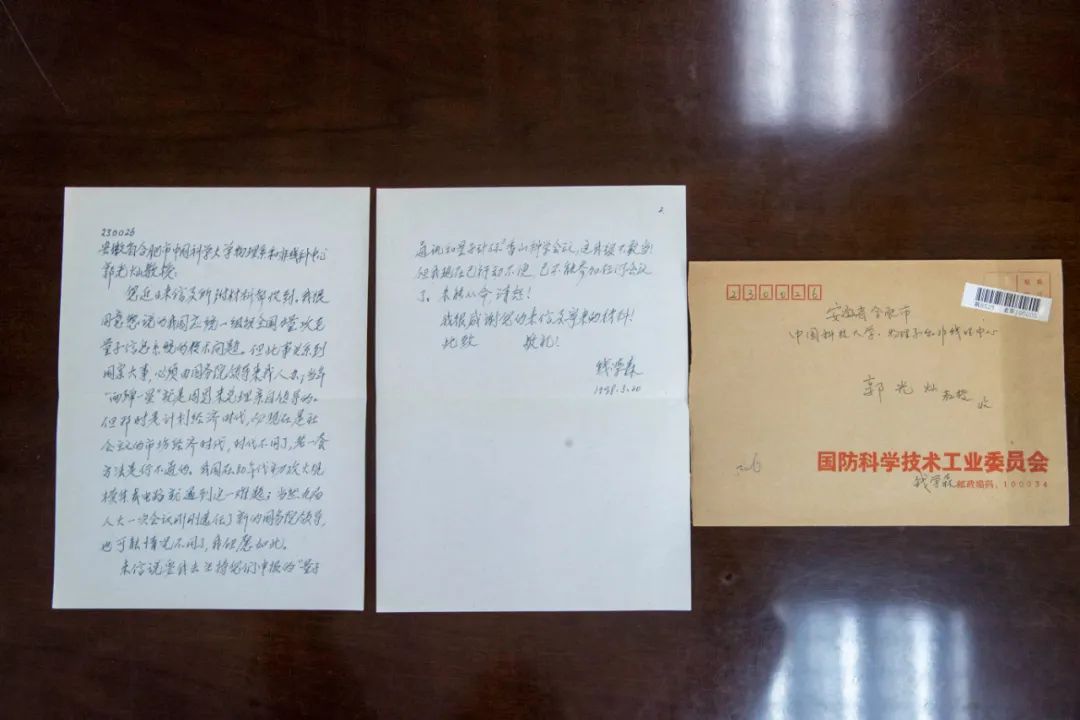 230026
安徽省合肥市中国科学大学物理系和非线科中心
郭光灿教授:
您近日来信及所附材料都收到。我很
同意您说的我国应统一组织全国力量攻克
量子信息系统的技术问题。但此事关系到
国家大事,必须由国务院领导来找人办;当年
“两弹一星”就是周恩来总理亲自领导的。
但那时是计划经济时代,而现在是社
会主义的市场经济时代,时代不同了,老一套
方法是行不通的。我国在80年代初攻大规
模集成电路就遇到这一难题;当然九届
人大一次会议刚刚选任了新的国务院领导,
也可能情况不同了,我但愿如此。
来信说要我去主持您们申报的“量子
2
通讯和量子计算”香山科学会议,这我极不敢当!
但我现在已行动不便,已不能参加任何会议
了。未能从命,请恕!
我很感谢您的来信及寄来的材料!
此致 敬礼!
钱学森
1998.3.20
230026
安徽省合肥市
中国科技大学·物理系和非线性中心
郭光灿 教授 收
国防科学技术工业委员会
钱学森 邮政编码:100034